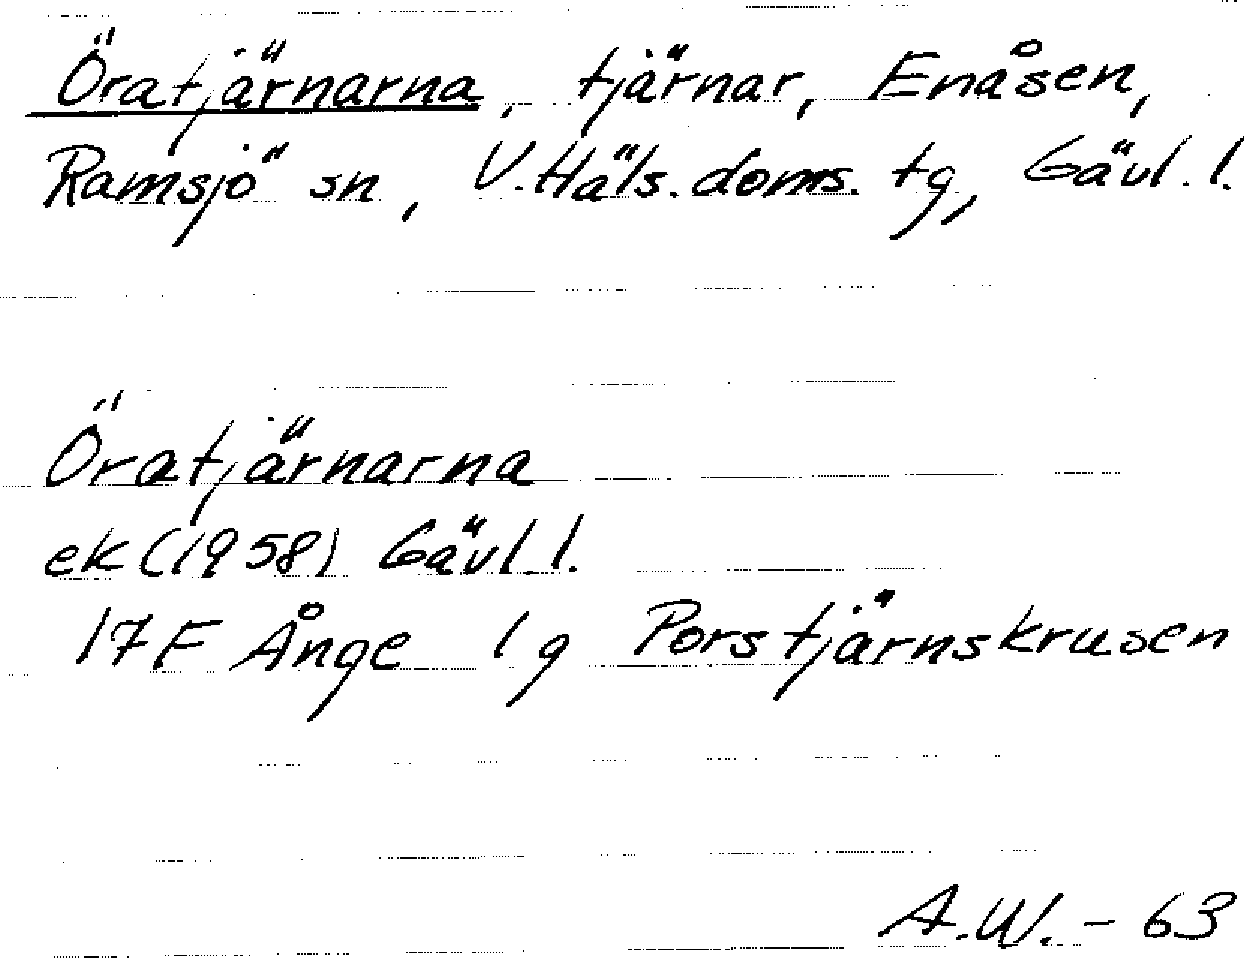 Öratjärnarna, tjärnar, Enåsen,
Ramsjö sn, V.Häls.doms.tg, Gävl.l.
Öratjärnarna
ek (1958) Gävl.l.
17F Ånge 1g Porstjärnskrusen
A.W.-63